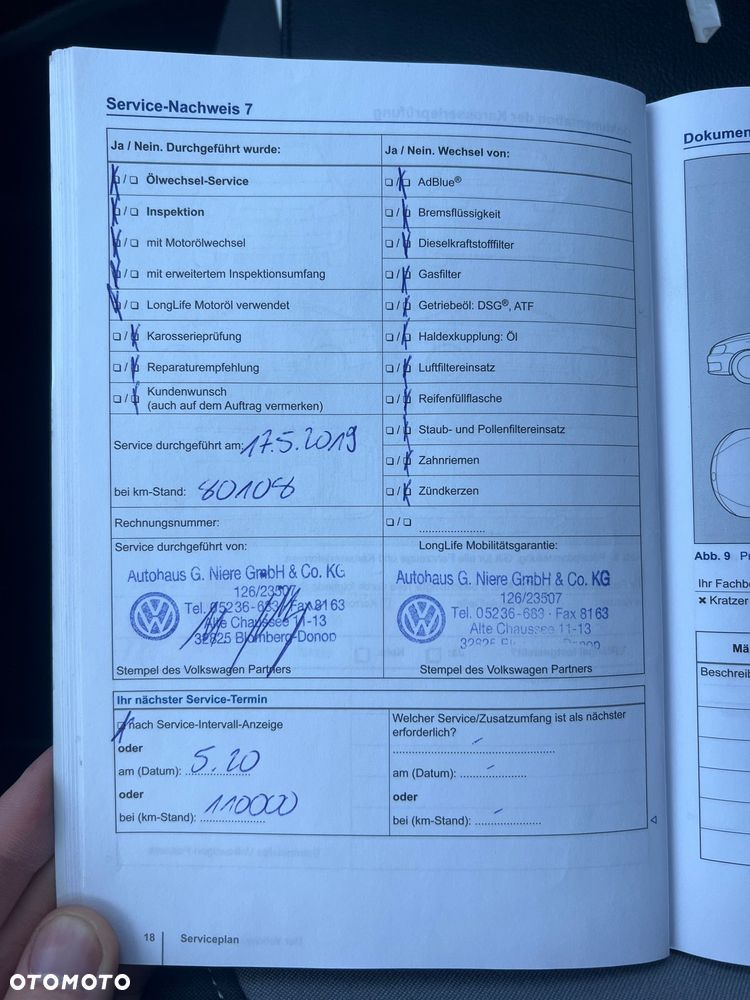 Service-Nachweis 7
Ja / Nein. Durchgeführt wurde:
Ölwechsel-Service
Inspektion
mit Motorölwechsel
mit erweitertem Inspektionsumfang
LongLife Motoröl verwendet
Karosserieprüfung
Reparaturempfehlung
Kundenwunsch
(auch auf dem Auftrag vermerken)
Service durchgeführt am: 17.5.2019
bei km-Stand: 80108
Rechnungsnummer:
Service durchgeführt von:
Autohaus G. Niere GmbH & Co. KG
126/23507
Tel. 05236-683 · Fax 8163
Alte Chaussee 11-13
32825 Blomberg-Donop
Stempel des Volkswagen Partners
Ja / Nein. Wechsel von:
AdBlue®
Bremsflüssigkeit
Dieselkraftstofffilter
Gasfilter
Getriebeöl: DSG®, ATF
Haldexkupplung: Öl
Luftfiltereinsatz
Reifenfüllflasche
Staub- und Pollenfiltereinsatz
Zahnriemen
Zündkerzen
LongLife Mobilitätsgarantie:
Autohaus G. Niere GmbH & Co. KG
126/23507
Tel. 05236-683 · Fax 8163
Alte Chaussee 11-13
Stempel des Volkswagen Partners
Ihr nächster Service-Termin
nach Service-Intervall-Anzeige
oder
am (Datum): 5.20
oder
bei (km-Stand): 110000
Welcher Service/Zusatzumfang ist als nächster
erforderlich?
am (Datum):
oder
bei (km-Stand):
18 Serviceplan
Abb. 9
Ihr Fachbe
× Kratzer
Beschreib
OTOMOTO